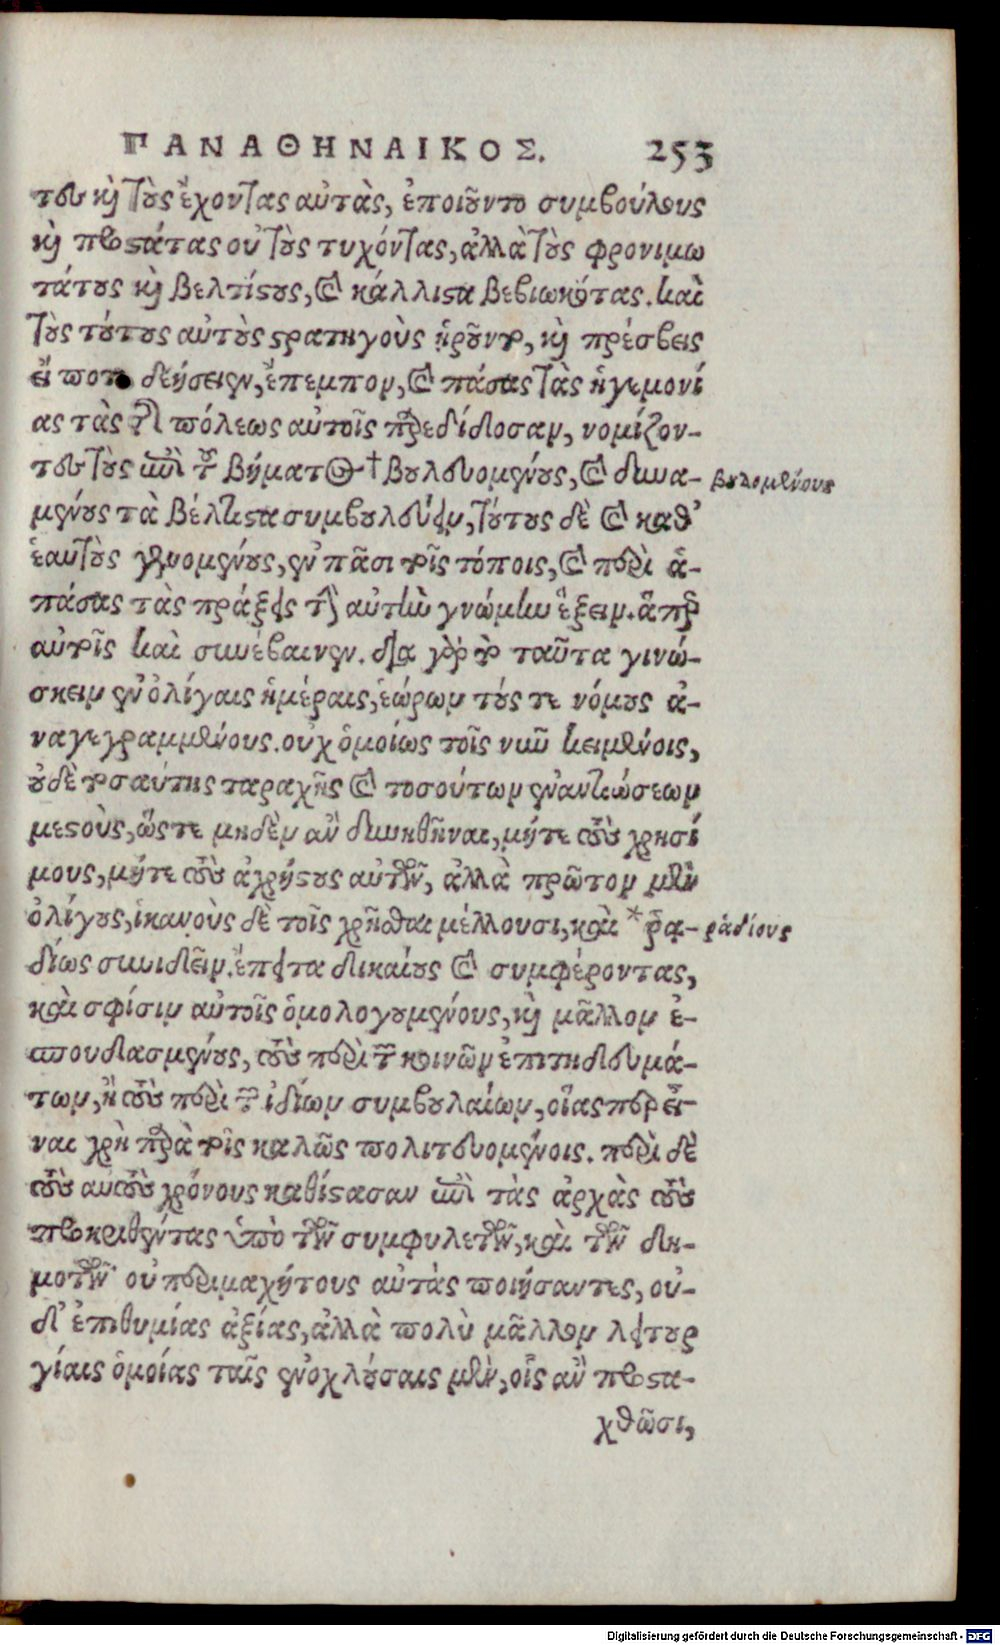 ΠΑΝΑΘΗΝΑΙΚΟΣ. 253
τευ καὶ τοὺς ἔχοντας αὐτὰς, ἐποιοῦντο συμβούλους
καὶ προστάτας οὐ τοὺς τυχόντας, ἀλλὰ τοὺς φρονιμω
τάτους καὶ βελτίστους, καὶ κάλλιστα βεβιωκότας. καὶ
τοὺς τούτους αὐτοὺς στρατηγοὺς ᾑροῦντο, καὶ πρέσβεις
εἴ ποτε δεήσειεν, ἔπεμπον, καὶ πάσας τὰς ἡγεμονί
ας τὰς τῆς πόλεως αὐτοῖς παρεδίδοσαν, νομίζον-
τευ τοὺς ἐπὶ τοῦ βήματος † βουλευομένους, καὶ δυνα- βουλομένους
μένους τὰ βέλτιστα συμβουλεύειν, τούτους δὲ καὶ καθ’
ἑαυτοὺς γενομένους, ἐν πᾶσι τοῖς τόποις, καὶ περὶ ἁ-
πάσας τὰς πράξεις τὴν αὐτὴν γνώμην ἕξειν. ἅπερ
αὐτοῖς καὶ συνέβαινεν. διὰ γὰρ τὸ ταῦτα γινώ-
σκειν ἐν ὀλίγαις ἡμέραις, ἑώρων τούς τε νόμους ἀ-
ναγεγραμμένους. οὐχ ὁμοίως τοῖς νῦν κειμένοις,
οὐδὲ τοσαύτης ταραχῆς καὶ τοσούτων ἐναντιώσεων
μεστοὺς, ὥστε μηδὲν ἂν δυνηθῆναι, μήτε τοὺς χρησί
μους, μήτε τοὺς ἀχρήστους αὐτῶν, ἀλλὰ πρῶτον μὲν
ὀλίγους, ἱκανοὺς δὲ τοῖς χρῆσθαι μέλλουσι, καὶ * ῥᾳ- ῥᾳδίους
δίως συνιδεῖν. ἔπειτα δικαίους καὶ συμφέροντας,
καὶ σφίσιν αὐτοῖς ὁμολογουμένους, καὶ μᾶλλον ἐ-
σπουδασμένους, τοὺς περὶ τῶν κοινῶν ἐπιτηδευμά-
των, ἢ τοὺς περὶ τῶν ἰδίων συμβολαίων, οἵας περ εἶ-
ναι χρὴ παρὰ τοῖς καλῶς πολιτευομένοις. περὶ δὲ
τοὺς αὐτοὺς χρόνους καθίστασαν ἐπὶ τὰς ἀρχὰς τοὺς
προκριθέντας ὑπὸ τῶν συμφυλετῶν, καὶ τῶν δη-
μοτῶν οὐ περιμαχήτους αὐτὰς ποιήσαντες, οὐ-
δ’ ἐπιθυμίας ἀξίας, ἀλλὰ πολὺ μᾶλλον λειτουρ
γίαις ὁμοίας ταῖς ἐνοχλούσαις μὲν, οἷς ἂν προστα-
χθῶσι,
Digitalisierung gefördert durch die Deutsche Forschungsgemeinschaft - DFG